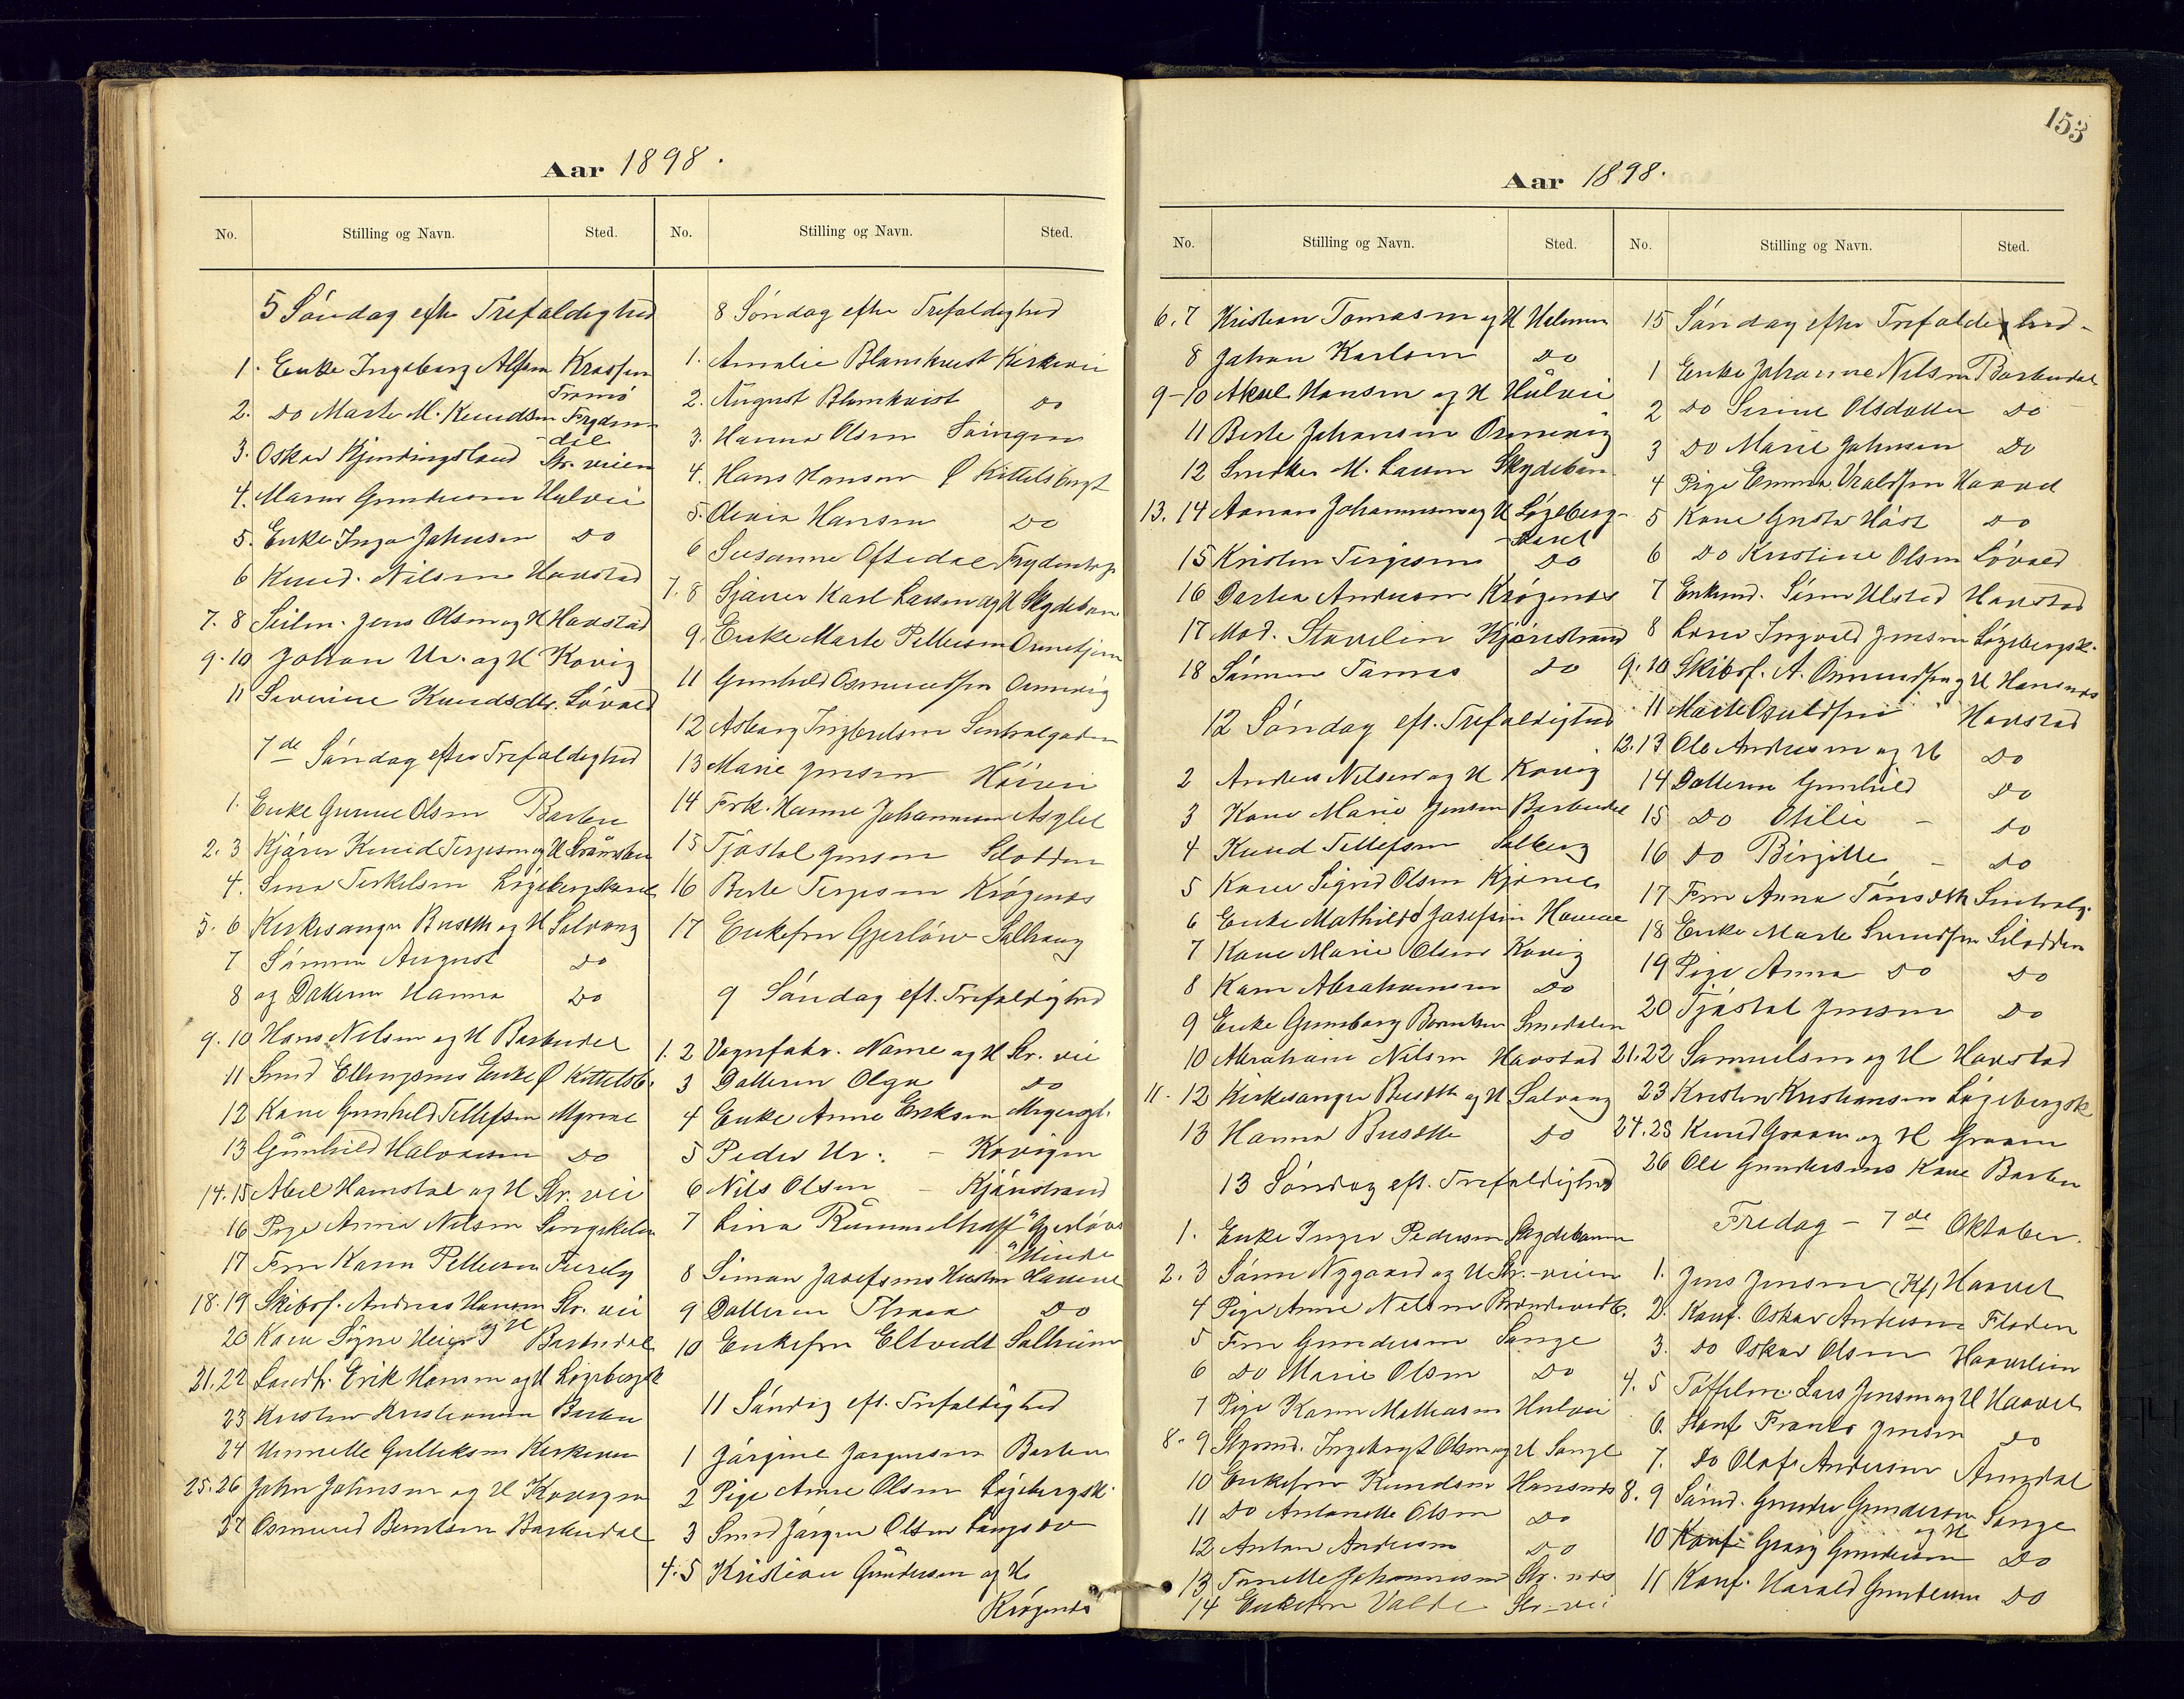 Aar 1898.
No. Stilling og Navn. Sted.
5 Söndag efter Trefoldighed
1. Enke Ingeborg Alfsen
Tromö
2. Do Marte M. Knudsen
3. Oskar Str. veien
4. Gundersen Hulvei
5. Enke Inga Johnsen Do
6 Knud. Nilsen Havstad
7. 8 Jens Olsen og H Havstad
9. 10 Johan Ur. og H Kovig
11 Severine Knudsdtr. Lövold
7de Söndag efter Trefoldighed
1. Enke Gunne Olsen Barbu
2. 3 Kjörer Knud Terjesen og H
4. Terkelsen Lögebergskaret
5. 6 Kirkesanger Buseth og H Solvang
7 Sönnen August Do
8 og Datteren Hanna Do
9. 10 Hans Nilsen og H Barbudal
11 Smed Ellingsens Enke Ø Kittelsb.
12 Kone Gunhild Tellefsen Myrene
13 Gunhild Halvorsen Do
14. 15 Abel Hamstal og H Str. vei
16 Pige Anna Nilsen
17 Fru Karen Pettersen Furely
18. 19 Skibsf. Andreas Hansen Str. vei
og H
20 Kone Signe Barbudal
21. 22 Landh. Erik Hansen og H Lögebergsk
23 Kristen Kristiansen Barbu
24 Gulliksen Kirkeveien
25. 26 John Johnsen og H Kovigen
27 Osmund Berntsen Barbudal
No. Stilling og Navn. Sted.
8 Söndag efter Trefoldighed
1. Amalie Blomkvist Kirkevei
2. August Blomkvist Do
3. Hanna Olsen
4. Hans Hansen Ø Kittelsbugt
5. Olevia Hansen Do
6 Susanne Oftedal
7. 8 Sjauer Karl Larsen og H Skydeban
9. Enke Marte Pettersen
11 Gunhild Osmundsen Ormevig
12 Asborg Ingbretsen Sentralgaden
13 Marie Jensen
14 Frk. Hanne Johannesen Asylet
15 Tjöstol Jensen Slodden
16 Berte Terjesen Krögenes
17 Enkefru Gjerlöw Solhaug
9 Söndag eft. Trefoldighed
1. 2 Vognfabr. Næme og H Str. vei
3 Datteren Olga Do
4 Enke Anne Eriksen
5 Peder Ur. - Kovigen
6 Nils Olsen - Kjönstrand
7 Lina Rummelhoff "Gjerlöws
Minde"
8 Simon Josefsens Hustru Havene
9 Datteren Thora Do
10 Enkefru Eltvedt Solheim
11 Söndag eft. Trefoldighed
1 Jörgine Jörgensen Barbu
2 Pige Anne Olsen Lögebergsk.
3 Smed Jörgen Olsen
4. 5 Kristian Gundersen og H.
Krögenes
153
Aar 1898.
No. Stilling og Navn. Sted.
6. 7 Kristian Tomasen og H
8 Johan Karlsen Do
9-10 Aksel Hansen og H Hulvei
11 Berte Johansen Ormevig
12 M. Larsen Skydeban
13. 14 Johannesen og H Lögeberg-
skaret
15 Kristen Terjesen Do
16 Dortea Andersen Krögenes
17 Mad. Stavelin Kjönstrand
18 Sönnen Tomas Do
12 Söndag eft. Trefoldighed
2 Anders Nilsen og H Kovig
3 Kone Marie Jensen Barbudal
4 Knud Tellefsen Solberg
5 Kone Sigrid Olsen
6 Enke Mathilde Josefsen Havene
7 Kone Marie Olsen Kovig
8 Karen Abrahamsen Do
9 Enke Gunborg Berntsen Smedalen
10 Abraham Nilsen Havstad
11. 12 Kirkesanger Buseth og H Solvang
13 Hanna Buseth Do
13 Söndag eft. Trefoldighed
1. Enke Inger Pedersen Skydebanen
2. 3 Sören Nygaard og H Str.-veien
4 Pige Anne Nilsen
5 Fru Gundersen Songe
6 Do Marie Olsen Do
7 Pige Karen Mathiasen Hulvei
8. 9 Styrmd. Ingebregt Olsen og H Songe
10 Enkefru Knudsen Hansnes
11 Do Antonette Olsen Do
12 Anton Andersen Do
13 Tonette Johannesen Str. nes
14 Enkefru Valde Str-vei
No. Stilling og Navn. Sted.
15 Söndag efter Trefoldighed-
1 Enke Johanne Nilsen Barbudal
2 Do Serine Olsdatter Do
3 Do Marie Johnsen Do
4 Pige Emma Haavet
5 Kone Do
6 Do Kristine Olsen Lövold
7 Enkemd. Sören Ulsted Havstad
8 Lars Ingvald Jensen Lögebergsk.
9. 10 Skibsf. A. Osmundsen og H Hansnes
11 Marte Osuldsen Havstad
12. 13 Ole Andersen og H Do
14 Datteren Gunhild Do
15 Do Otilie - Do
16 Do Birgitte - Do
17 Fru Anna Tönseth Sentralg.
18 Enke Marte Slodden
19 Pige Anna Do Do
20 Tjöstol Jensen Do
21. 22 Samuelsen og H Havstad
23 Kristen Kristiansen Lögebergsk
24. 25 Knud Graam og H Graam
26 Ole Gundersens Kone Barbu
Fredag - 7de Oktober.
1. Jens Jensen (Kf) Haavet
2. Konf. Oskar Andersen Floden
3. Do Oskar Olsen
4. 5 Lars Jensen og H Haavet
6. Konf Frants Jensen Do
7. Do Olaf Andersen Amzdal
8. 9 Gunder Gundersen Songe
og H
10 Konf. Georg Gundersen Do
11 Konf. Harald Gundersen Do